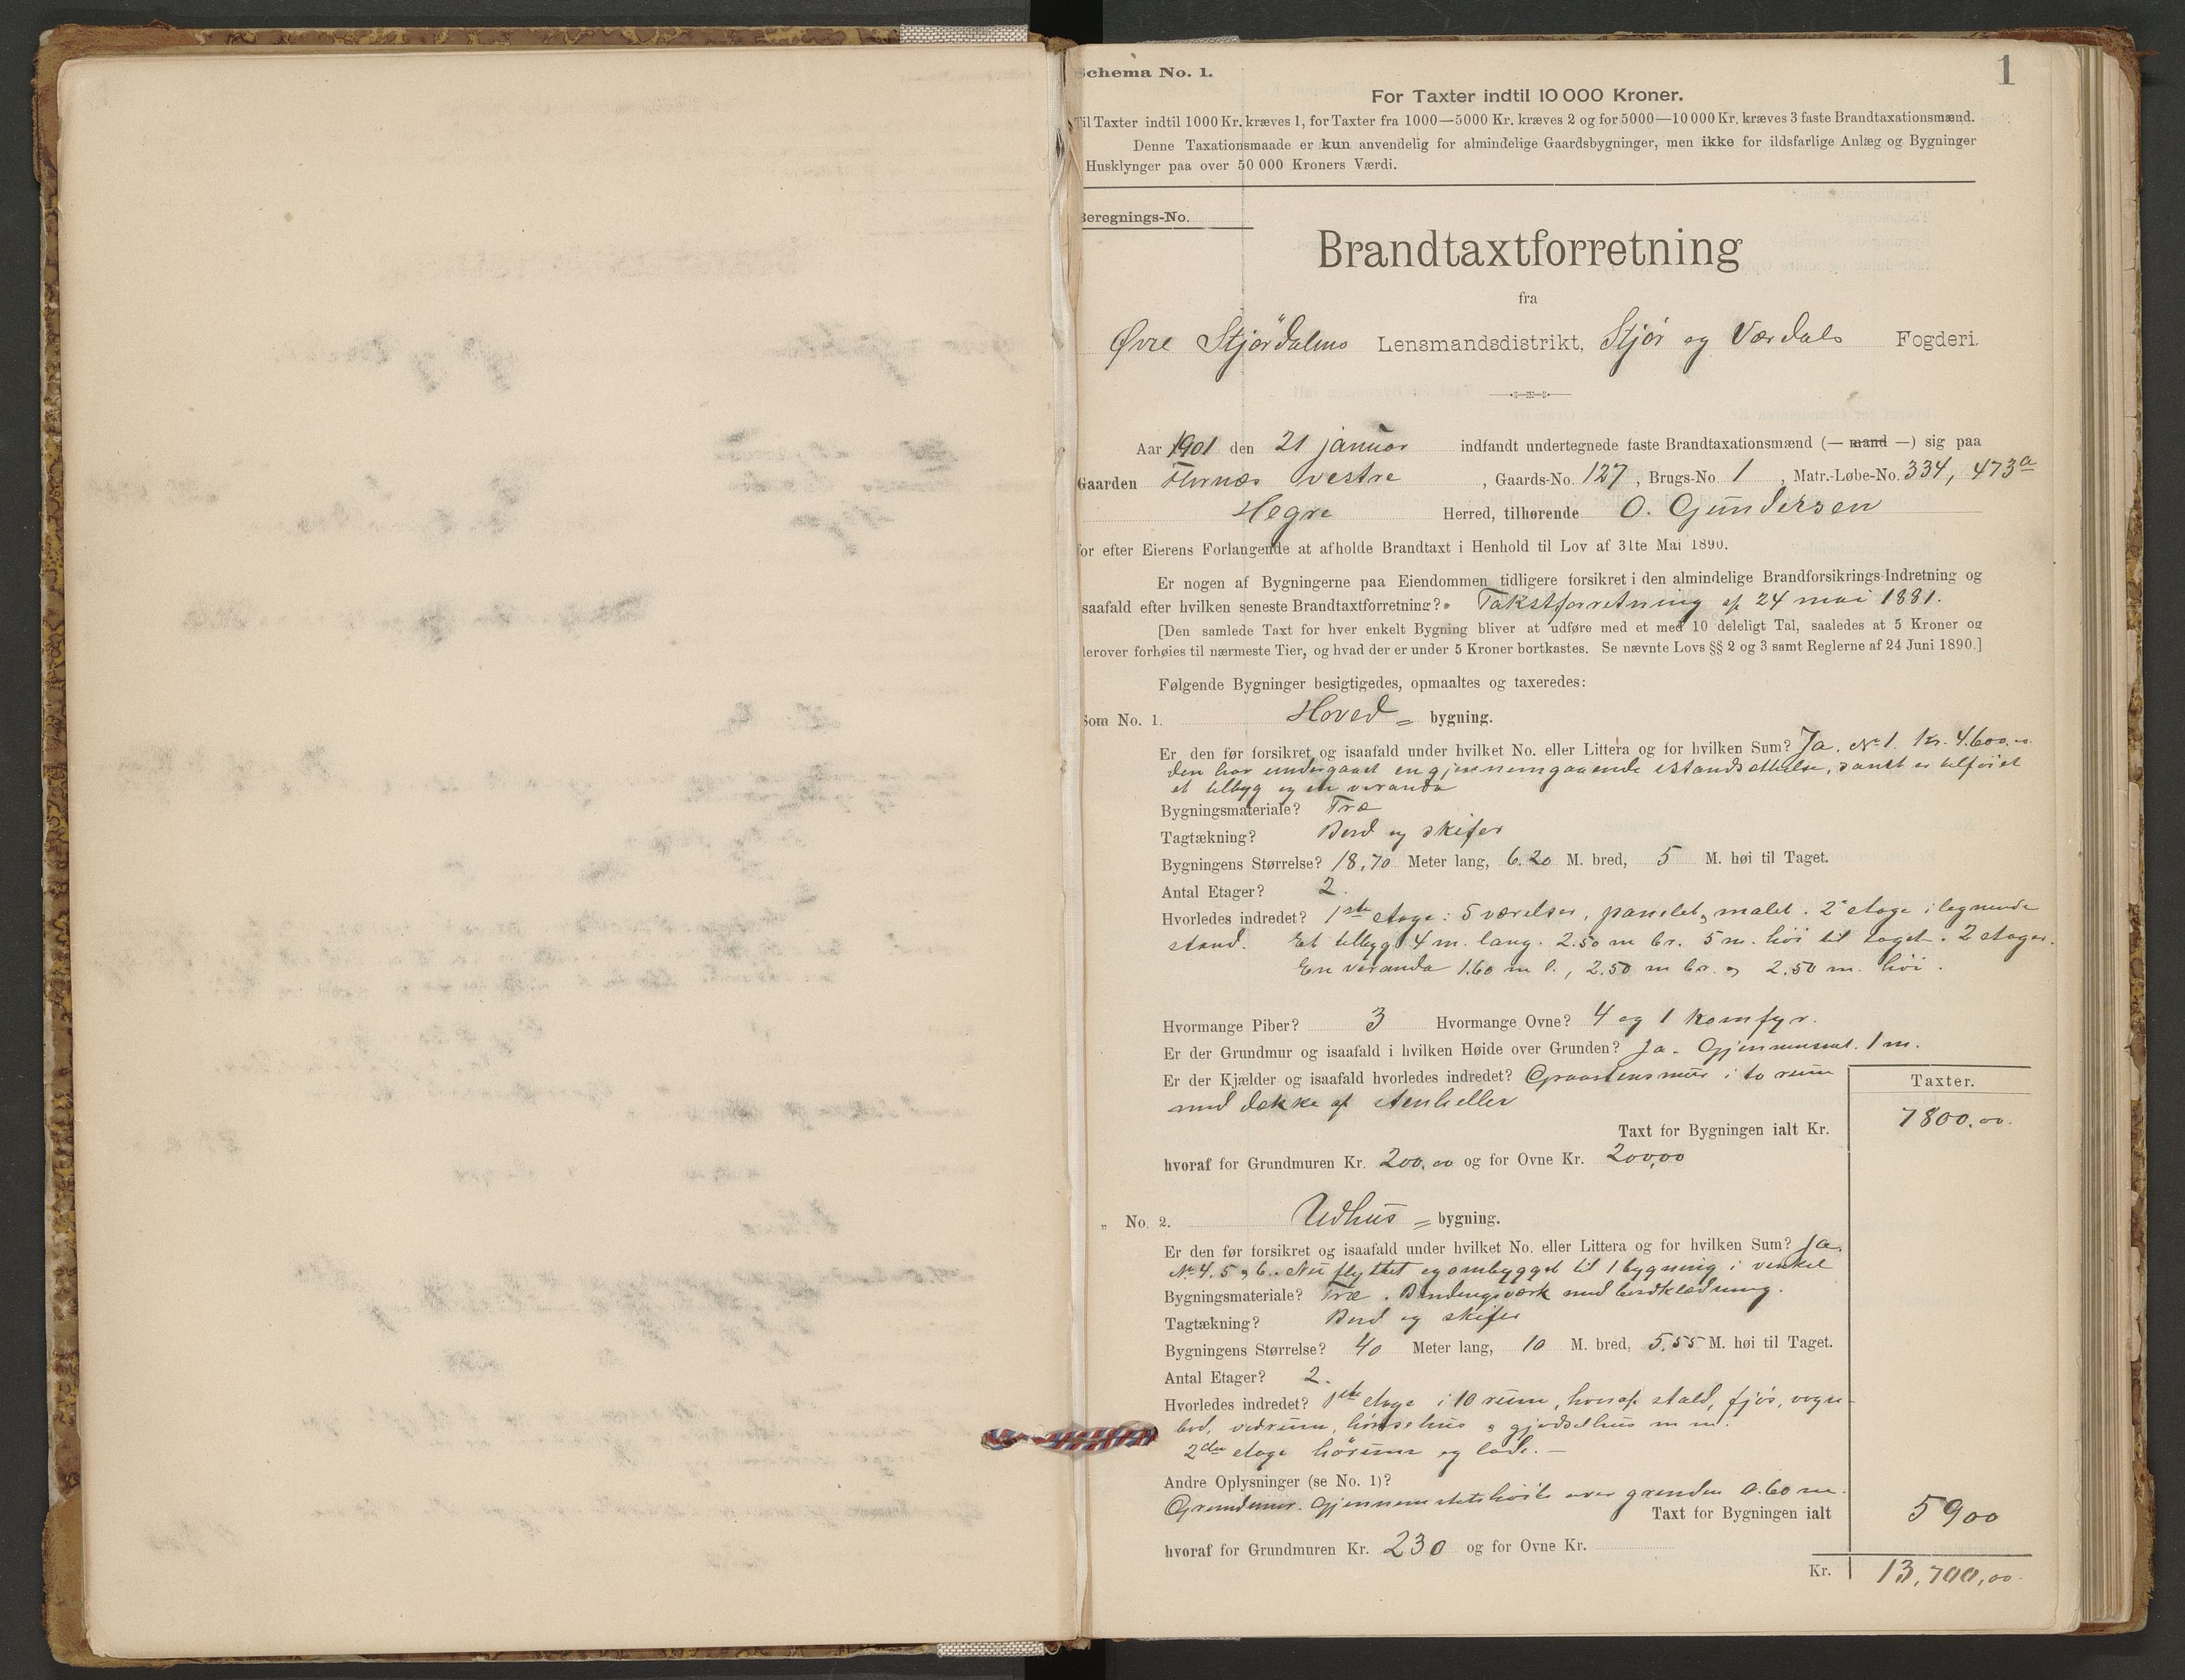 1
Schema No. 1.
For Taxter indtil 10 000 Kroner.
Til Taxter indtil 1000 Kr. kræves 1, for Taxter fra 1000—5000 Kr. kræves 2 og for 5000—10 000 Kr. kræves 3 faste Brandtaxationsmænd.
Denne Taxationsmaade er kun anvendelig for almindelige Gaardsbygninger, men ikke for ildsfarlige Anlæg og Bygninger
Husklynger paa over 50 000 Kroners Værdi.
Beregnings-No.
Brandtaxtforretning
fra
Øvre Stjørdalens Lensmandsdistrikt, Stjør og Værdals Fogderi.
Aar 1901 den 21 januar indfandt undertegnede faste Brandtaxationsmænd (— mand —) sig paa
Gaarden Flornæs vestre , Gaards-No. 127 , Brugs-No. 1 , Matr.-Løbe-No. 334, 473a
Hegre Herred, tilhørende O. Gundersen
for efter Eierens Forlangende at afholde Brandtaxt i Henhold til Lov af 31te Mai 1890.
Er nogen af Bygningerne paa Eiendommen tidligere forsikret i den almindelige Brandforsikrings-Indretning og
isaafald efter hvilken seneste Brandtaxtforretning? Takstforretning af 24 mai 1881.
[Den samlede Taxt for hver enkelt Bygning bliver at udføre med et med 10 deleligt Tal, saaledes at 5 Kroner og
derover forhøies til nærmeste Tier, og hvad der er under 5 Kroner bortkastes. Se nævnte Lovs §§ 2 og 3 samt Reglerne af 24 Juni 1890.]
Følgende Bygninger besigtigedes, opmaaltes og taxeredes:
Som No. 1. Hoved = bygning.
Er den før forsikret og isaafald under hvilket No. eller Littera og for hvilken Sum? Ja. No 1. Kr. 4.600.00
den har undergaaet en gjennemgaaende istandsættelse, samt er tilføiet
et tilbyg og en veranda
Bygningsmateriale? Træ
Tagtækning? Bord og skifer
Bygningens Størrelse? 18,70 Meter lang, 6.20 M. bred, 5 M. høi til Taget.
Antal Etager? 2.
Hvorledes indredet? 1ste etage: 5 værelser, panelet, malet. 2 etage i lignende
stand. Et tilbyg 4 m. lang. 2.50 m br. 5 m. høi til taget. 2 etager.
En veranda 1.60 m l., 2.50 m br. og 2.50 m. høi.
Hvormange Piber? 3 Hvormange Ovne? 4 og 1 komfyr.
Er der Grundmur og isaafald i hvilken Høide over Grunden? Ja. Gjennemsnit. 1 m.
Er der Kjælder og isaafald hvorledes indredet? Graastensmur i to rum
med dække af stenheller
Taxter.
Taxt for Bygningen ialt Kr. 7800.00.
hvoraf for Grundmuren Kr. 200.00 og for Ovne Kr. 200,00
„ No. 2. Udhus = bygning.
Er den før forsikret og isaafald under hvilket No. eller Littera og for hvilken Sum? Ja.
No 4. 5 og 6. Nu flyttet og ombygget til 1 bygning i vinkel
Bygningsmateriale? Træ. Bindingsværk med bordklædning.
Tagtækning? Bord og skifer
Bygningens Størrelse? 40 Meter lang, 10 M. bred, 5.55 M. høi til Taget.
Antal Etager? 2.
Hvorledes indredet? 1ste etage i 10 rum, hvoraf stald, fjøs, vogn-
bod, vedrum, hønsehus og gjødselhus m m.
2den etage hørum og lade. —
Andre Oplysninger (se No. 1)?
Grundmur. Gjennemsnitshøide over grunden 0.60 m.
Taxt for Bygningen ialt 5900
hvoraf for Grundmuren Kr. 230 og for Ovne Kr.
Kr. 13,700,00.